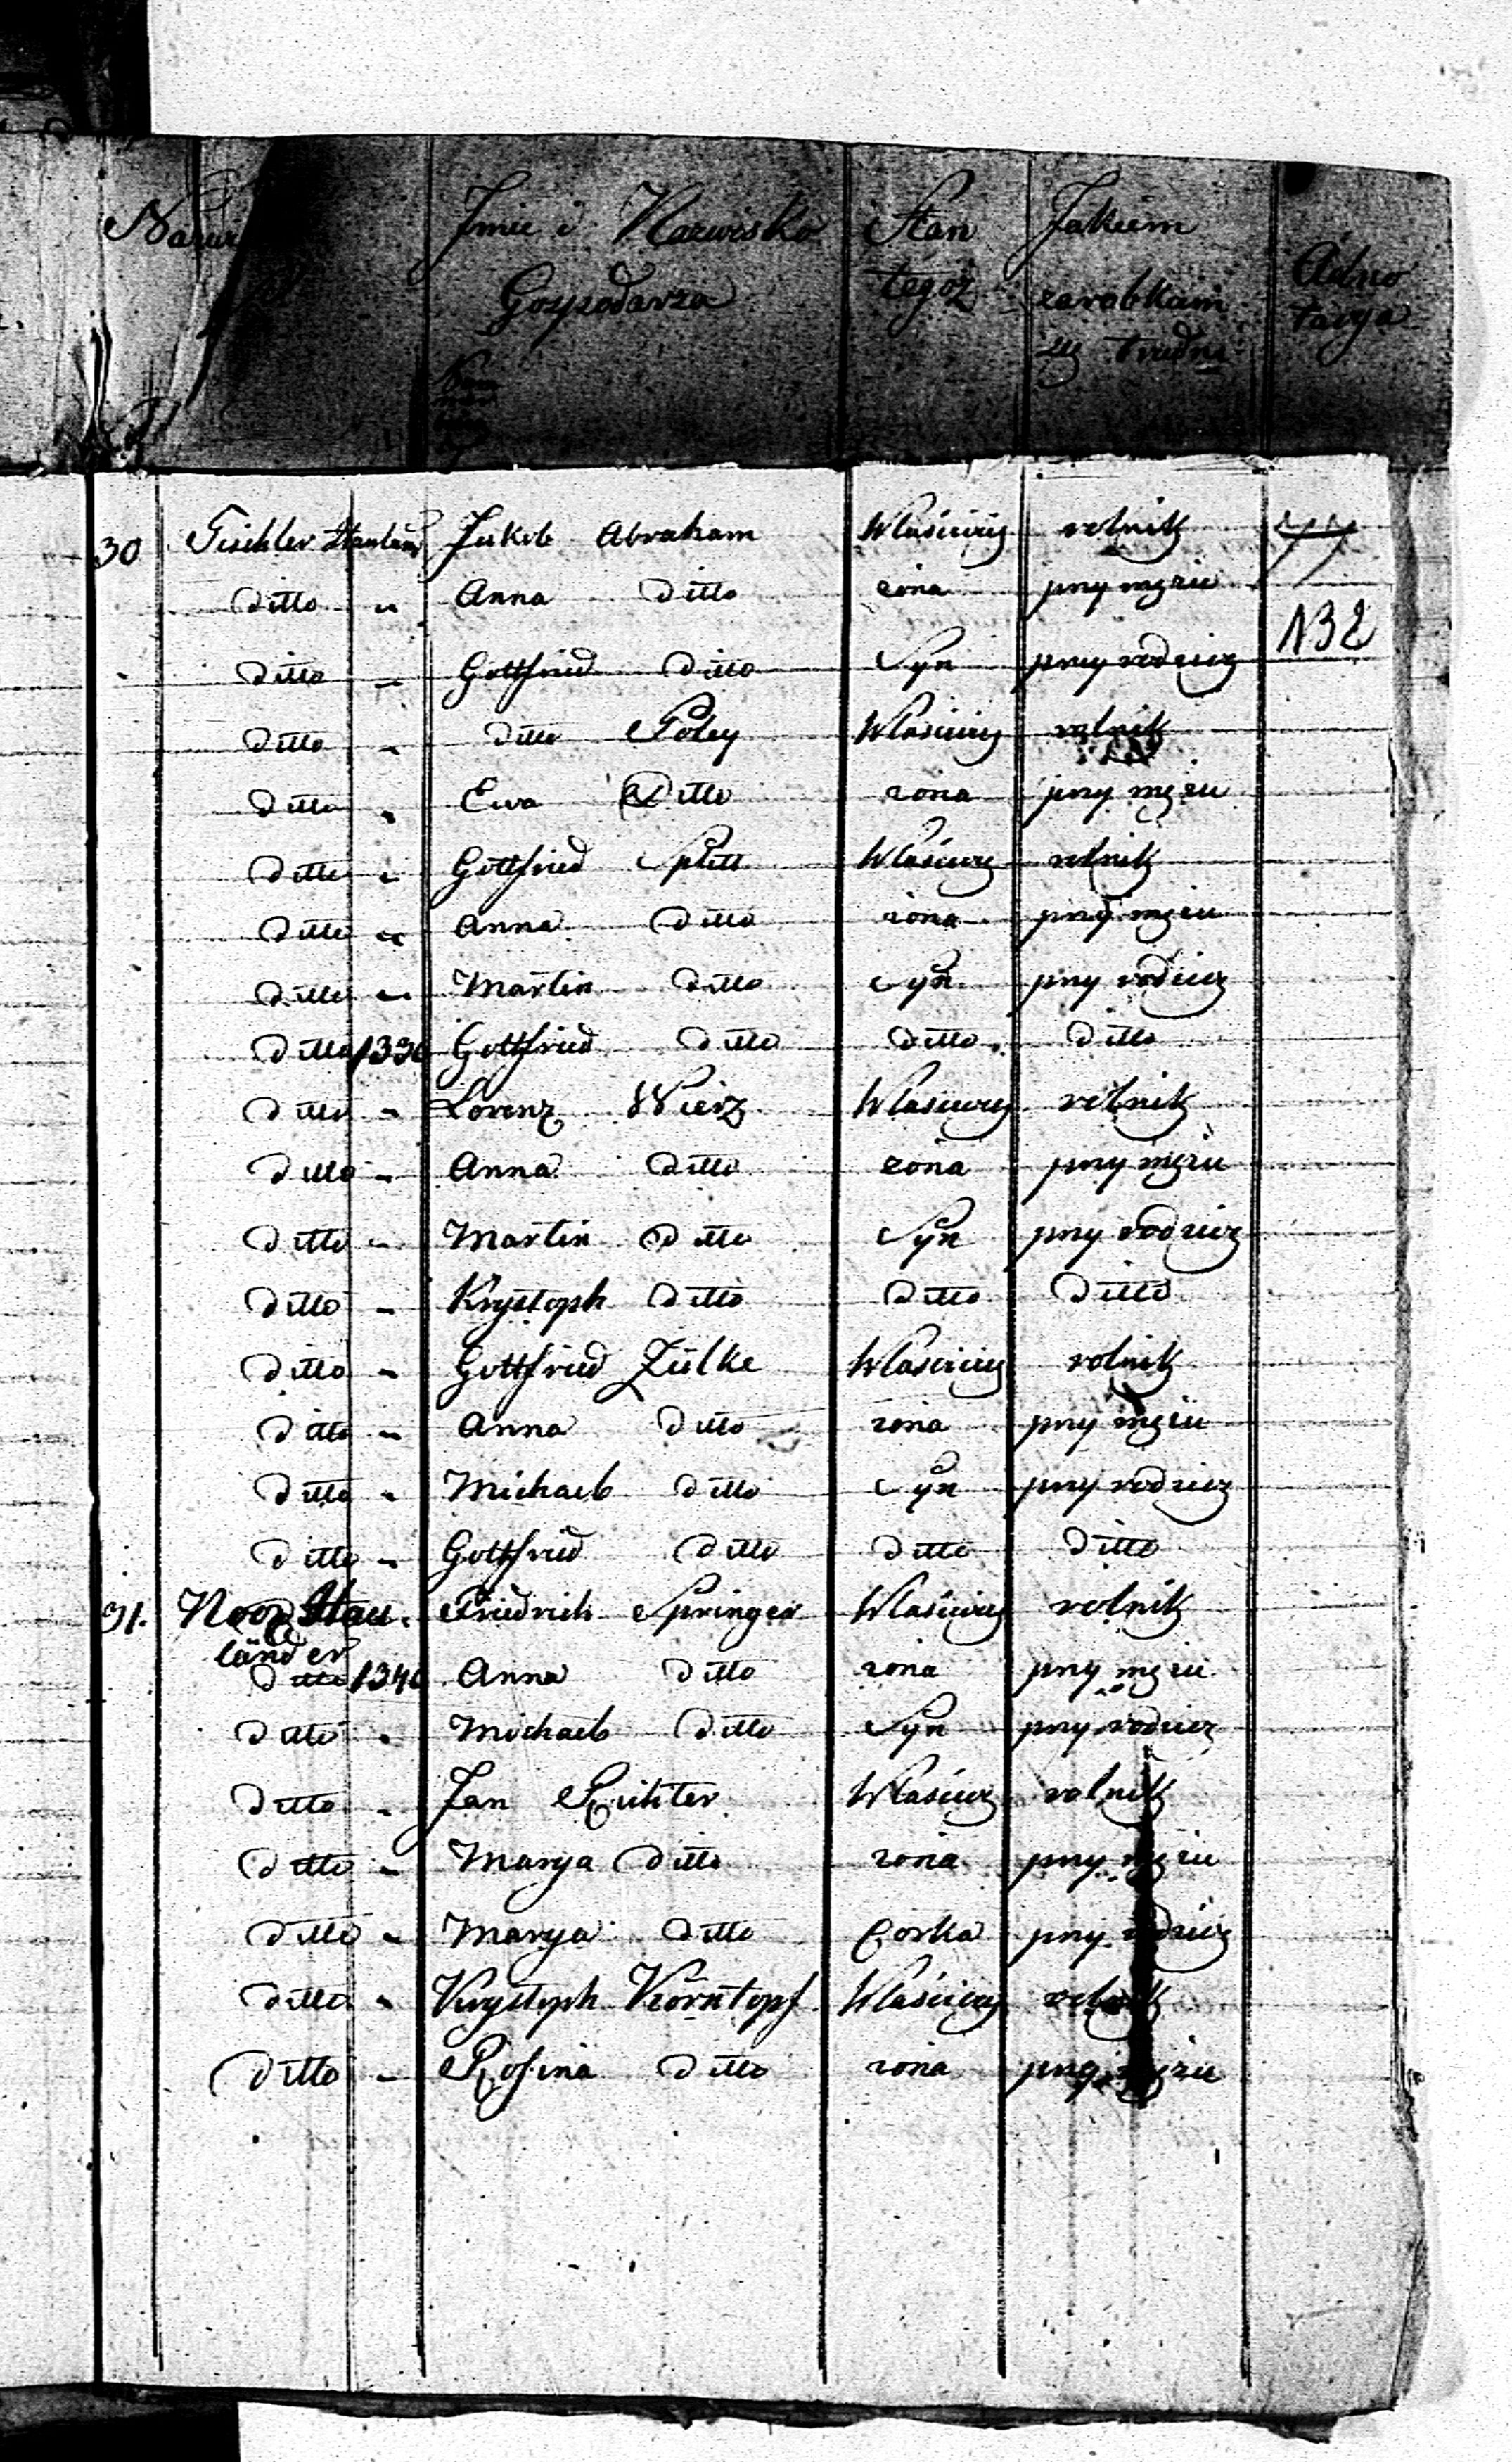 Imie i Nazwisko Gospodarza Stan tegoż Jakiem zarobkiem się trudni Adnotacya
30 Tischler Jakob Abraham Właściciel rolnik 77
ditto " Anna ditto żona przy mężu
132
ditto - Gottfried ditto Syn przy rodzicz
ditto - ditto Poley Właściciel rolnik
ditto " Ewa Ditto żona przy mężu
ditto " Gottfried Splitt Właściciel rolnik
ditto " Anna ditto żona przy mężu
ditto " Martin ditto Syn przy rodzicz
ditto 1330 Gottfried ditto ditto ditto
ditto - Lorenz Wierz Właściciel rolnik
ditto - Anna ditto żona przy mężu
ditto - Martin ditto Syn przy rodzicz
ditto - Krystoph ditto ditto ditto
ditto - Gottfried Zülke Właściciel rolnik
ditto - Anna ditto żona przy mężu
ditto - Michael ditto Syn przy rodzicz
ditto - Gottfried ditto ditto ditto
31. Friedrich Springer Właściciel rolnik
länder
ditto 1340 Anna ditto żona przy mężu
ditto " Michael ditto Syn przy rodzicz
ditto - Jan Richter Właściciel rolnik
ditto - Marya ditto żona przy mężu
ditto - Marya ditto Corka przy rodzicz
ditto - Krystoph Körntopf Właściciel rolnik
ditto - Rosina ditto żona przy mężu